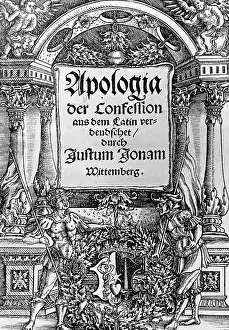 Apologia
der Confession
aus dem Latin ver-
deudschet/
durch
Justum Jonam
Wittemberg.